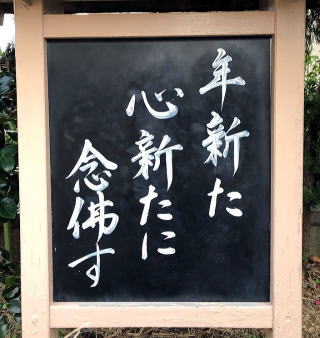 年新た
心新たに
念佛す